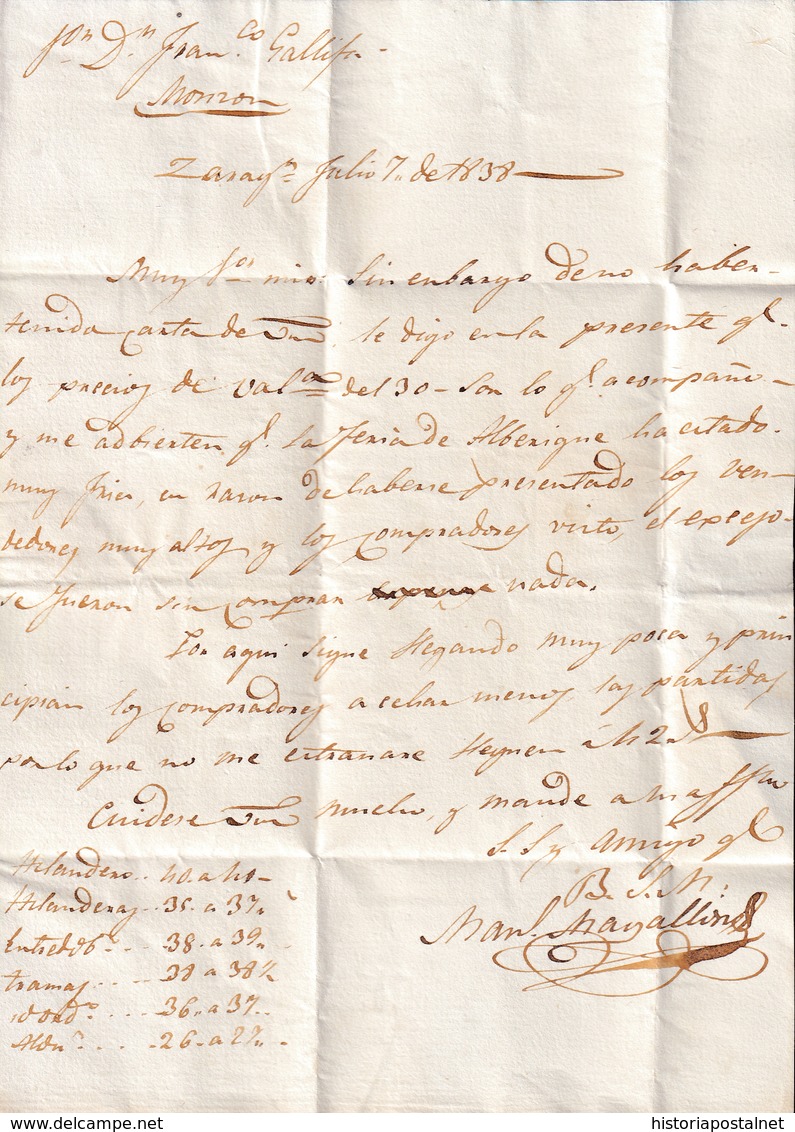 Sor. Dn. Franco. Gallifa
Monzon
Zaraga. Julio 7,, de 1838
Muy Sor. mio: Sin enbargo de no haber
tenido carta de Vm le digo en la presente ql.
los precios de Vala. del 30 - son lo ql. acompaño
y me adbierten ql. la feria de Alberique ha estado
muy fria, en razon de haberse presentado los ven-
dedores muy altos y los compradores visto el excejo
se fueron sin comprar nada.
Por aqui sigue llegando muy poca y prin
cipian los compradores a echar menos las partidas
por lo que no me estrañare lleguen á 42
Cuidese Vm mucho, y mande a su affmo
S. S. y Amigo ql
B. S. M.
Manl. Magallon
Hilandero .. 40. a 41.
Hilanderas .. 35. a 37,,
Entredo. ... 38. a 39,,
tramas ... 38 a 38½
.... 36,, a 37,,
Aldr. ... 26. a 27,,
historiapostalnet